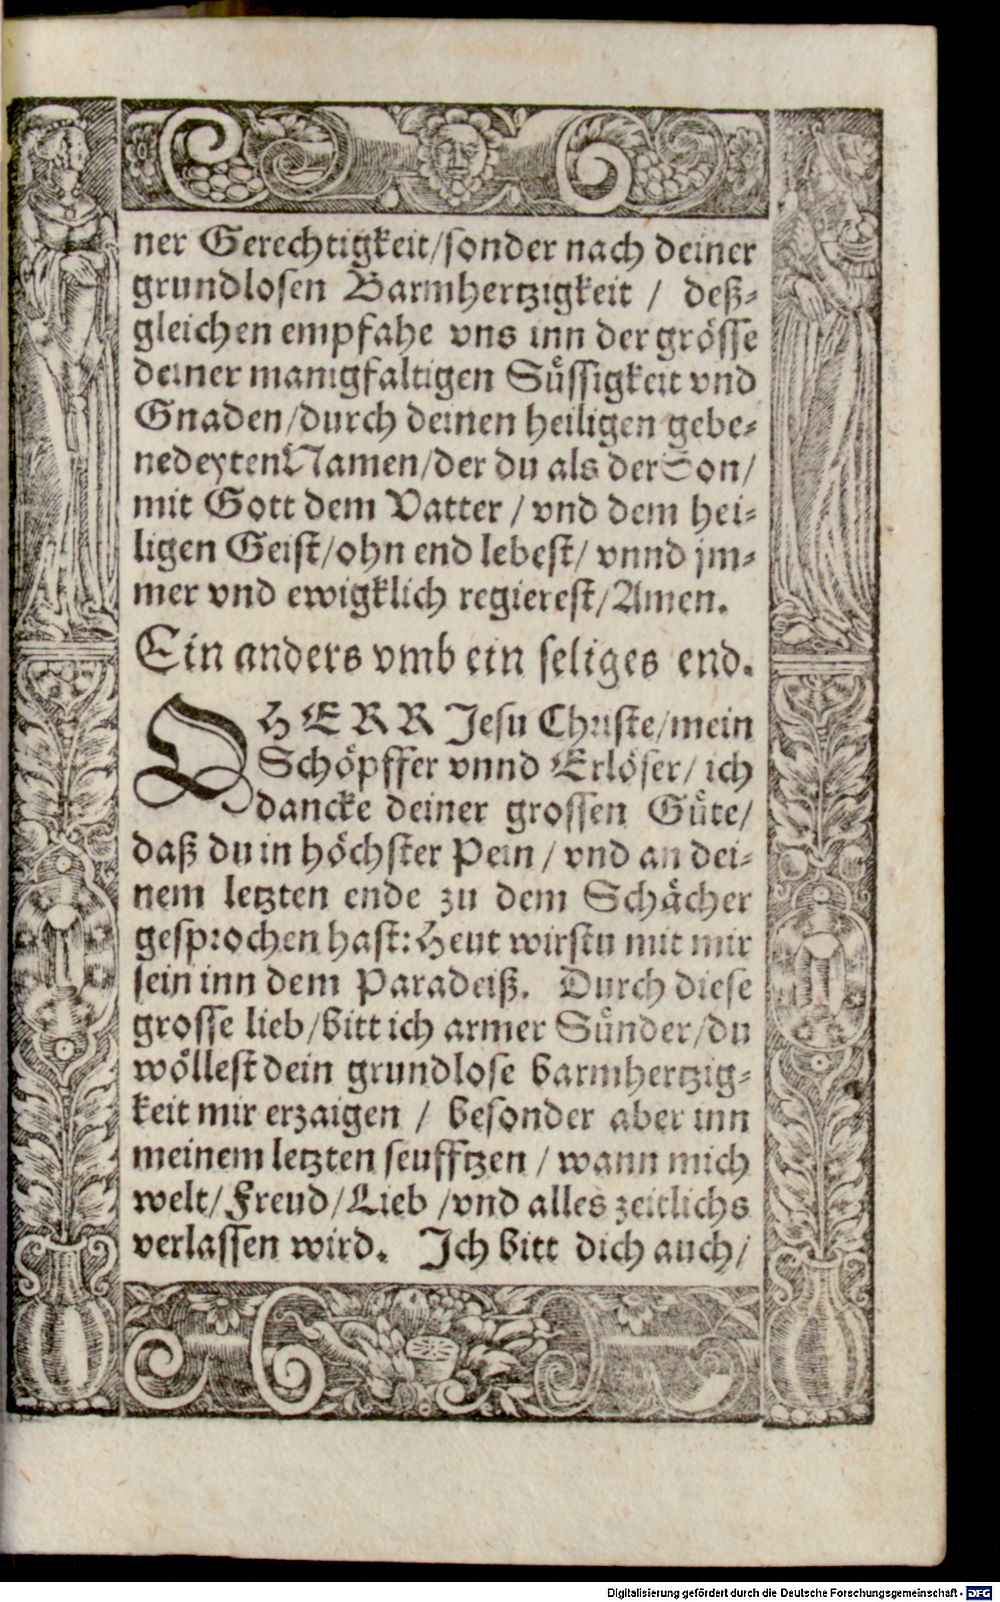 ner Gerechtigkeit/sonder nach deiner
grundlosen Barmhertzigkeit / deß-
gleichen empfahe vns inn der grösse
deiner manigfaltigen Süssigkeit vnd
Gnaden/durch deinen heiligen gebe-
nedeyten Namen/der du als der Son/
mit Gott dem Vatter / vnd dem hei-
ligen Geist/ohn end lebest/ vnnd jm-
mer vnd ewigklich regierest/Amen.
Ein anders vmb ein seliges end.
O HERR Jesu Christe/mein
Schöpffer vnnd Erlöser/ ich
dancke deiner grossen Güte/
daß du in höchster Pein / vnd an dei-
nem letzten ende zu dem Schächer
gesprochen hast: Heut wirstu mit mir
sein inn dem Paradeiß. Durch diese
grosse lieb/bitt ich armer Sünder/du
wöllest dein grundlose barmhertzig-
keit mir erzaigen / besonder aber inn
meinem letzten seufftzen / wann mich
welt/Freud/Lieb /vnd alles zeitlichs
verlassen wird. Ich bitt dich auch/
Digitalisierung gefördert durch die Deutsche Forschungsgemeinschaft - DFG